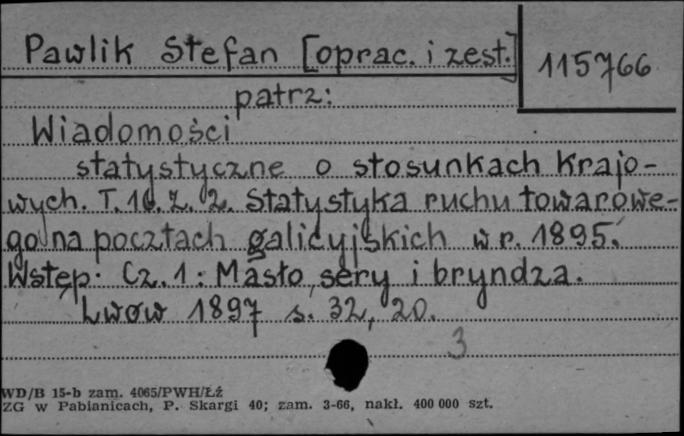 Pawlik Stefan [oprac. i zest.]
115766
patrz:
Wiadomości
statystyczne o stosunkach krajo-
wych. T. 16. Z. 2. Statystyka ruchu towarowe-
go na pocztach galicyjskich w r. 1895.
Wstęp. Cz. 1: Masło, sery i bryndza.
Lwów 1897 s. 32, 20.
3
WD/B 15-b zam. 4065/PWH/Łź
ZG w Pabianicach, P. Skargi 40; zam. 3-66, nakł. 400 000 szt.